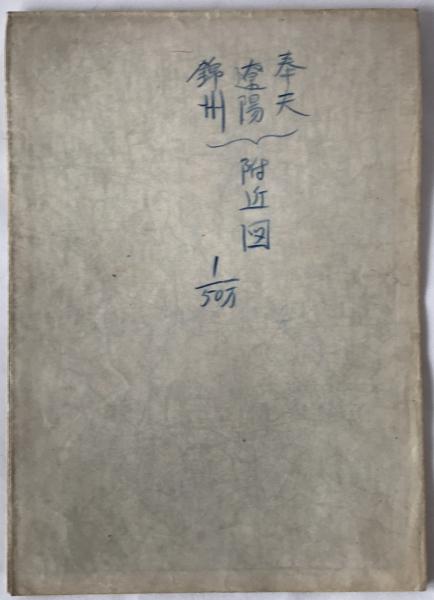 奉天
遼陽
錦州
附近図
1/50万